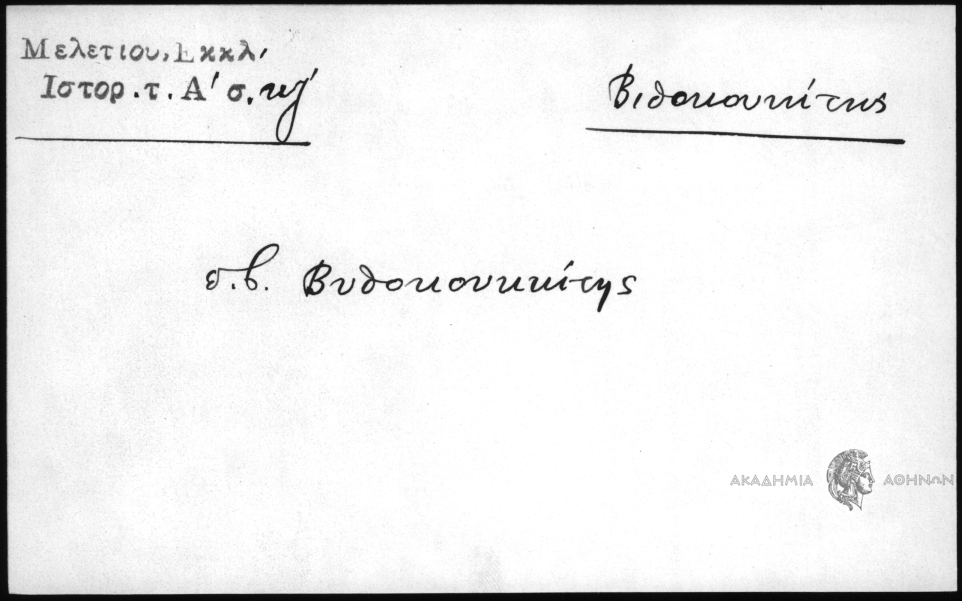 Μελετίου, Εκκλ,
Ιστορ. τ. Α' σ. κζ'
Βιθοκουκίτης
σ.β. Βυθοκουκκίτης
ΑΚΑΔΗΜΙΑ ΑΘΗΝΩΝ